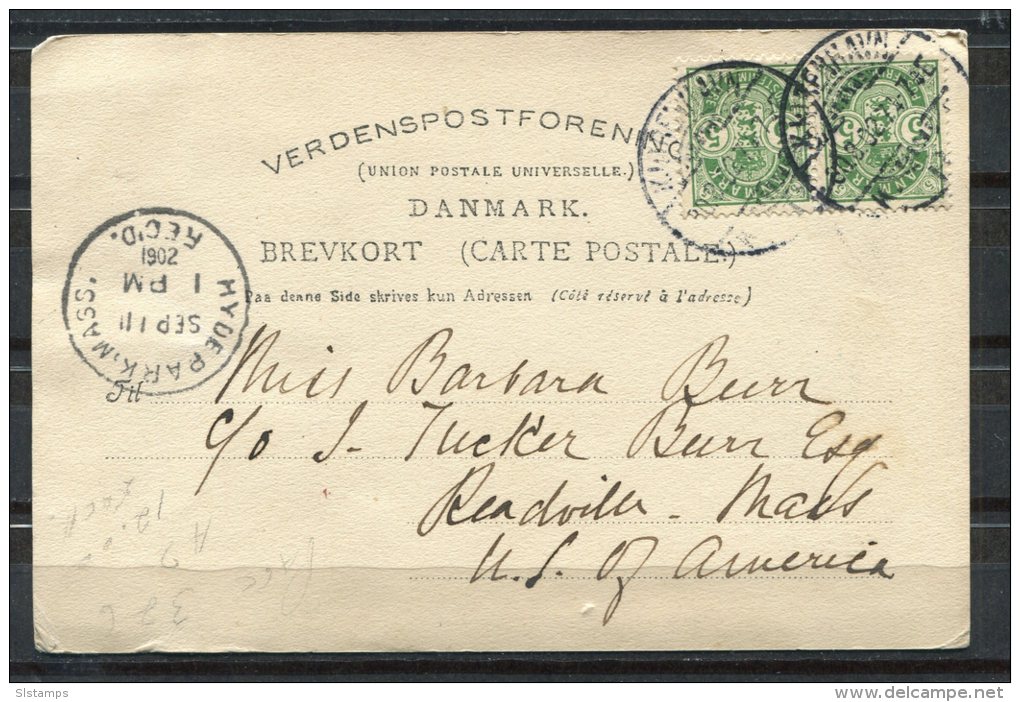 VERDENSPOSTFORENI
(UNION POSTALE UNIVERSELLE.)
DANMARK.
BREVKORT (CARTE POSTALE.)
Paa denne Side skrives kun Adressen (Côté réservé à l'adresse)
HYDE PARK, MASS.
SEP 11
1 PM
1902
REC'D.
Til
Miss Barbara Burr
c/o I- Tucker Burr Esq
Readville - Mass
U.S. Of America
Slstamps
delcampe.net